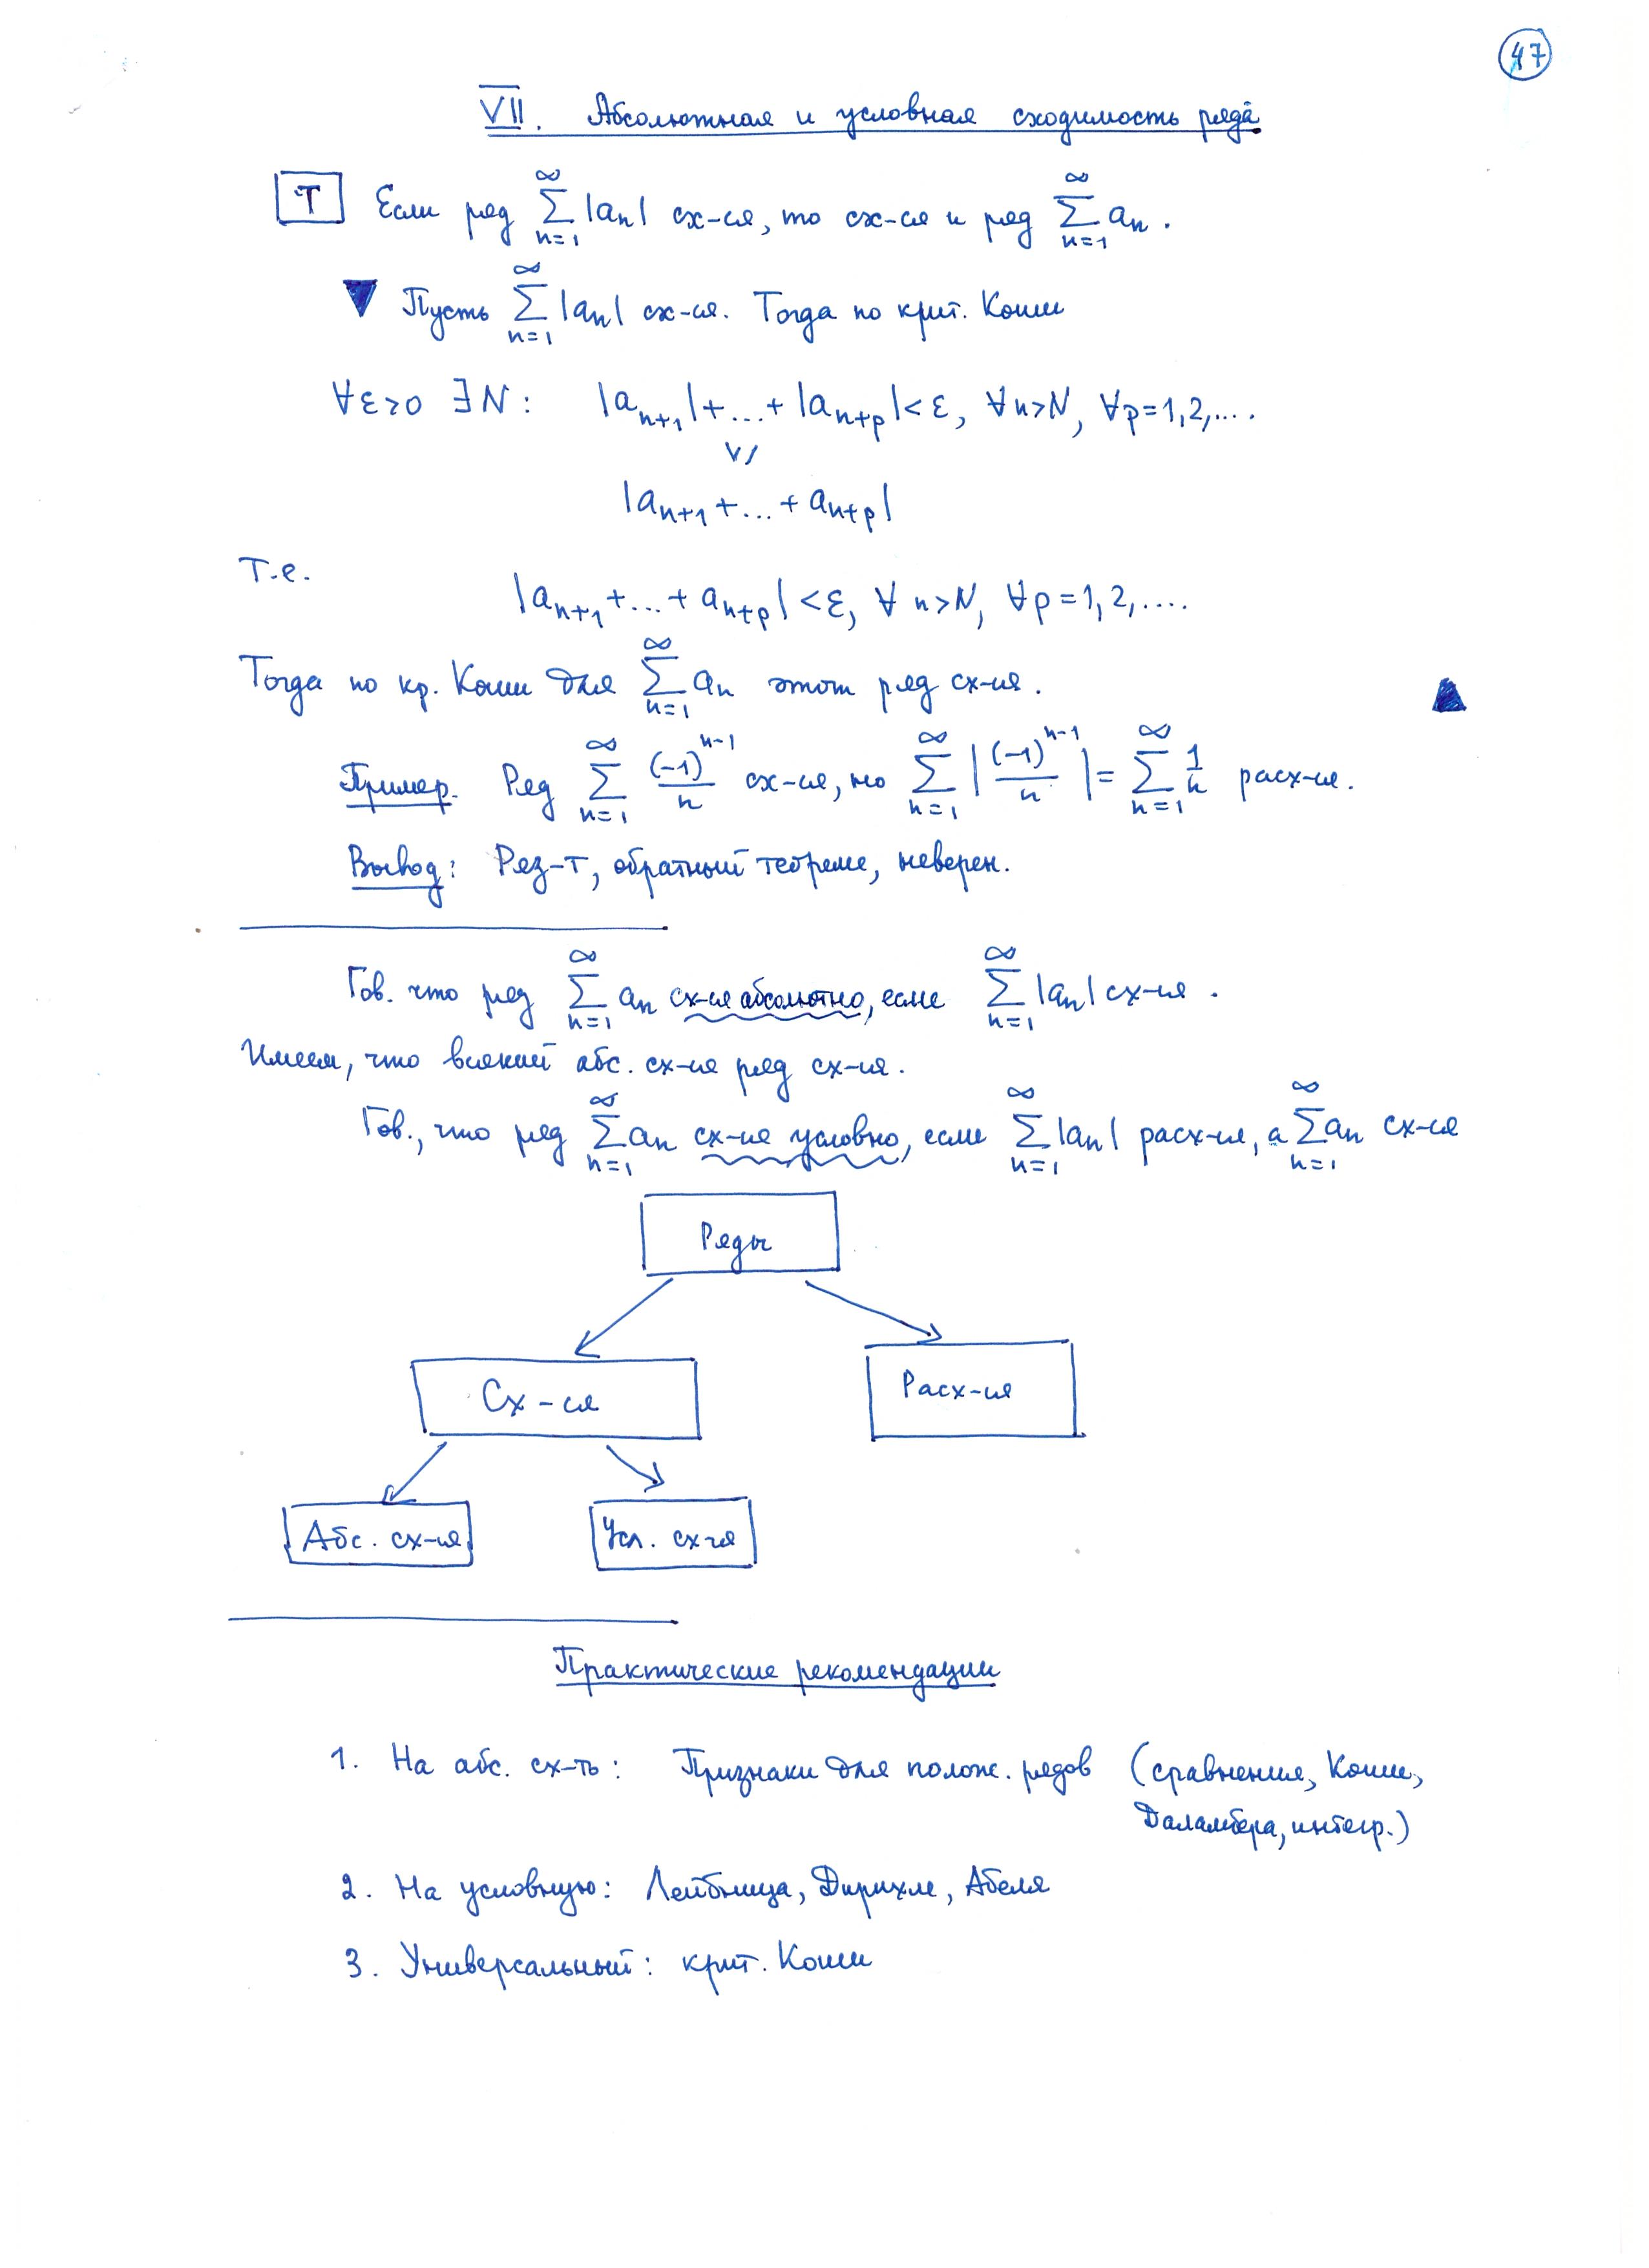 47
VII. Абсолютная и условная сходимость ряда
Т Если ряд ∑_{n=1}^{∞} |a_n| сх-ся, то сх-ся и ряд ∑_{n=1}^{∞} a_n.
▼ Пусть ∑_{n=1}^{∞} |a_n| сх-ся. Тогда по крит. Коши
∀ε>0 ∃N: |a_{n+1}|+...+|a_{n+p}|<ε, ∀n>N, ∀p=1,2,....
∨/
|a_{n+1}+...+a_{n+p}|
Т.е.
|a_{n+1}+...+a_{n+p}|<ε, ∀n>N, ∀p=1,2,....
Тогда по кр. Коши для ∑_{n=1}^{∞} a_n этот ряд сх-ся. ▲
Пример. Ряд ∑_{n=1}^{∞} (-1)^{n-1}/n сх-ся, но ∑_{n=1}^{∞} |(-1)^{n-1}/n| = ∑_{n=1}^{∞} 1/n расх-ся.
Вывод: Рез-т, обратный теореме, неверен.
Гов. что ряд ∑_{n=1}^{∞} a_n сх-ся абсолютно, если ∑_{n=1}^{∞} |a_n| сх-ся.
Имеем, что всякий абс. сх-ся ряд сх-ся.
Гов., что ряд ∑_{n=1}^{∞} a_n сх-ся условно, если ∑_{n=1}^{∞} |a_n| расх-ся, а ∑_{n=1}^{∞} a_n сх-ся
Ряды
Сх-ся
Расх-ся
Абс. сх-ся
Усл. сх-ся
Практические рекомендации
1. На абс. сх-ть: Признаки для полож. рядов (сравнения, Коши,
Даламбера, интегр.)
2. На условную: Лейбница, Дирихле, Абеля
3. Универсальный: крит. Коши